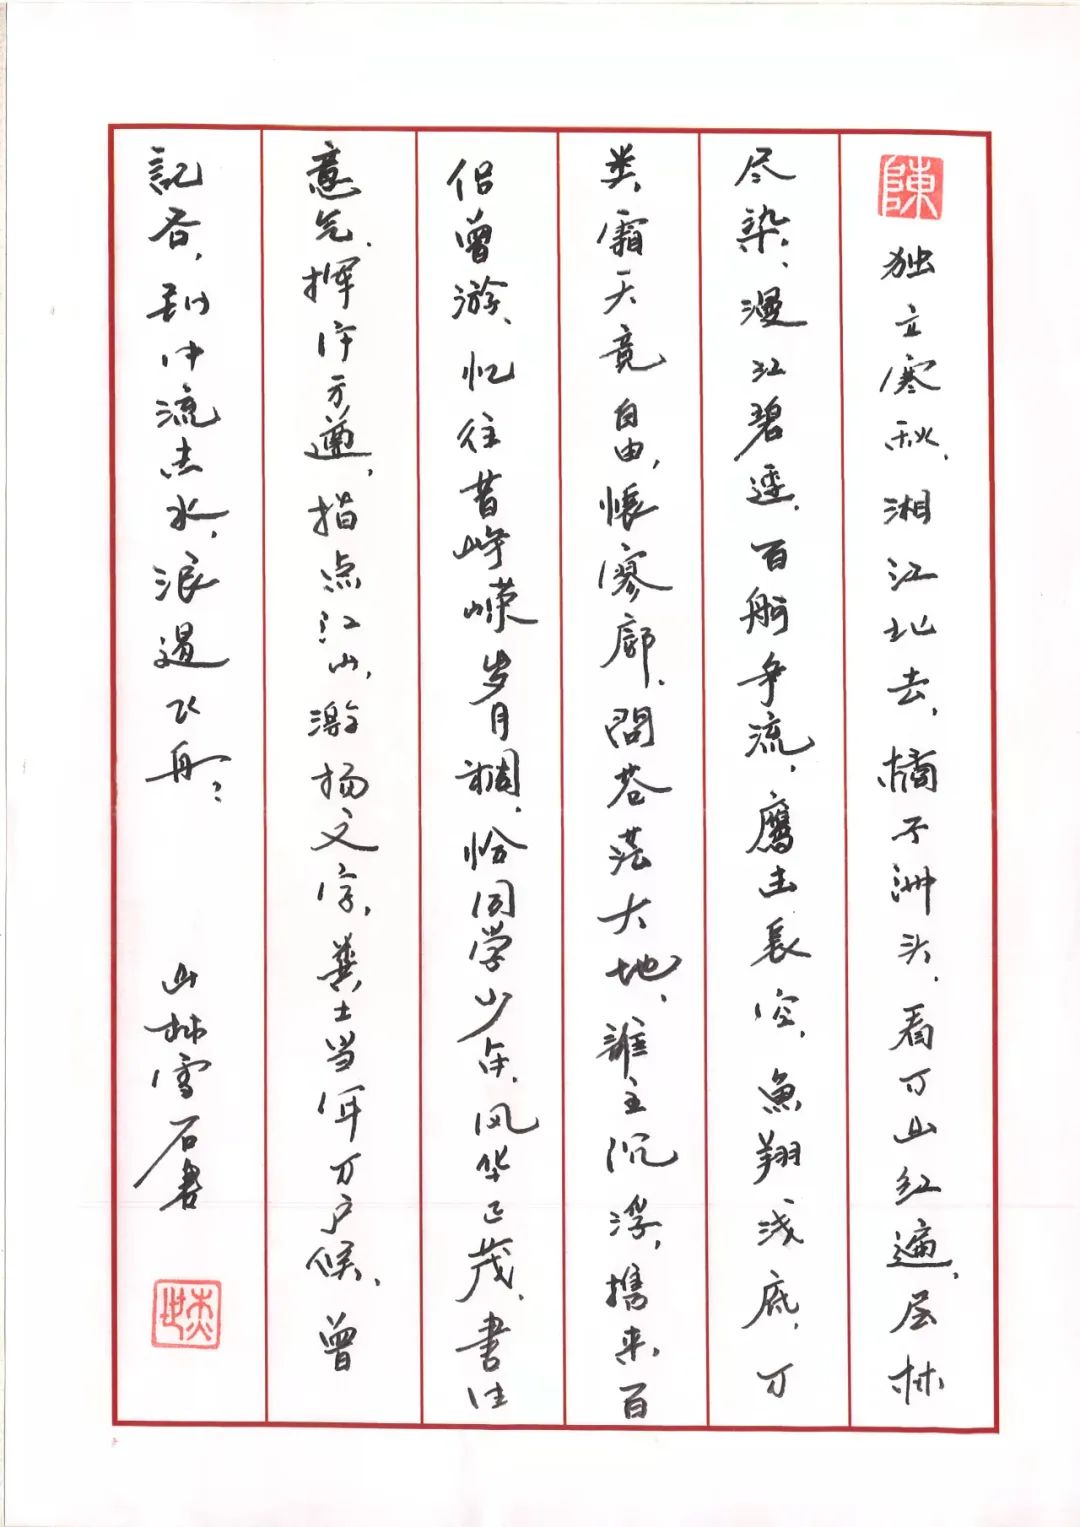 陳
独立寒秋,湘江北去,橘子洲头,看万山红遍,层林
尽染、漫江碧透,百舸争流,鹰击長空,魚翔浅底,万
类霜天竞自由,怅寥廓,問苍茫大地,誰主沉浮,携来百
侣曾游、忆往昔峥嵘岁月稠,恰同学少年,风华正茂,書生
意气,挥斥方遒,指点江山,激扬文字,粪土当年万户侯,曾
記否,到中流击水,浪遏飞舟?
山林雪石書